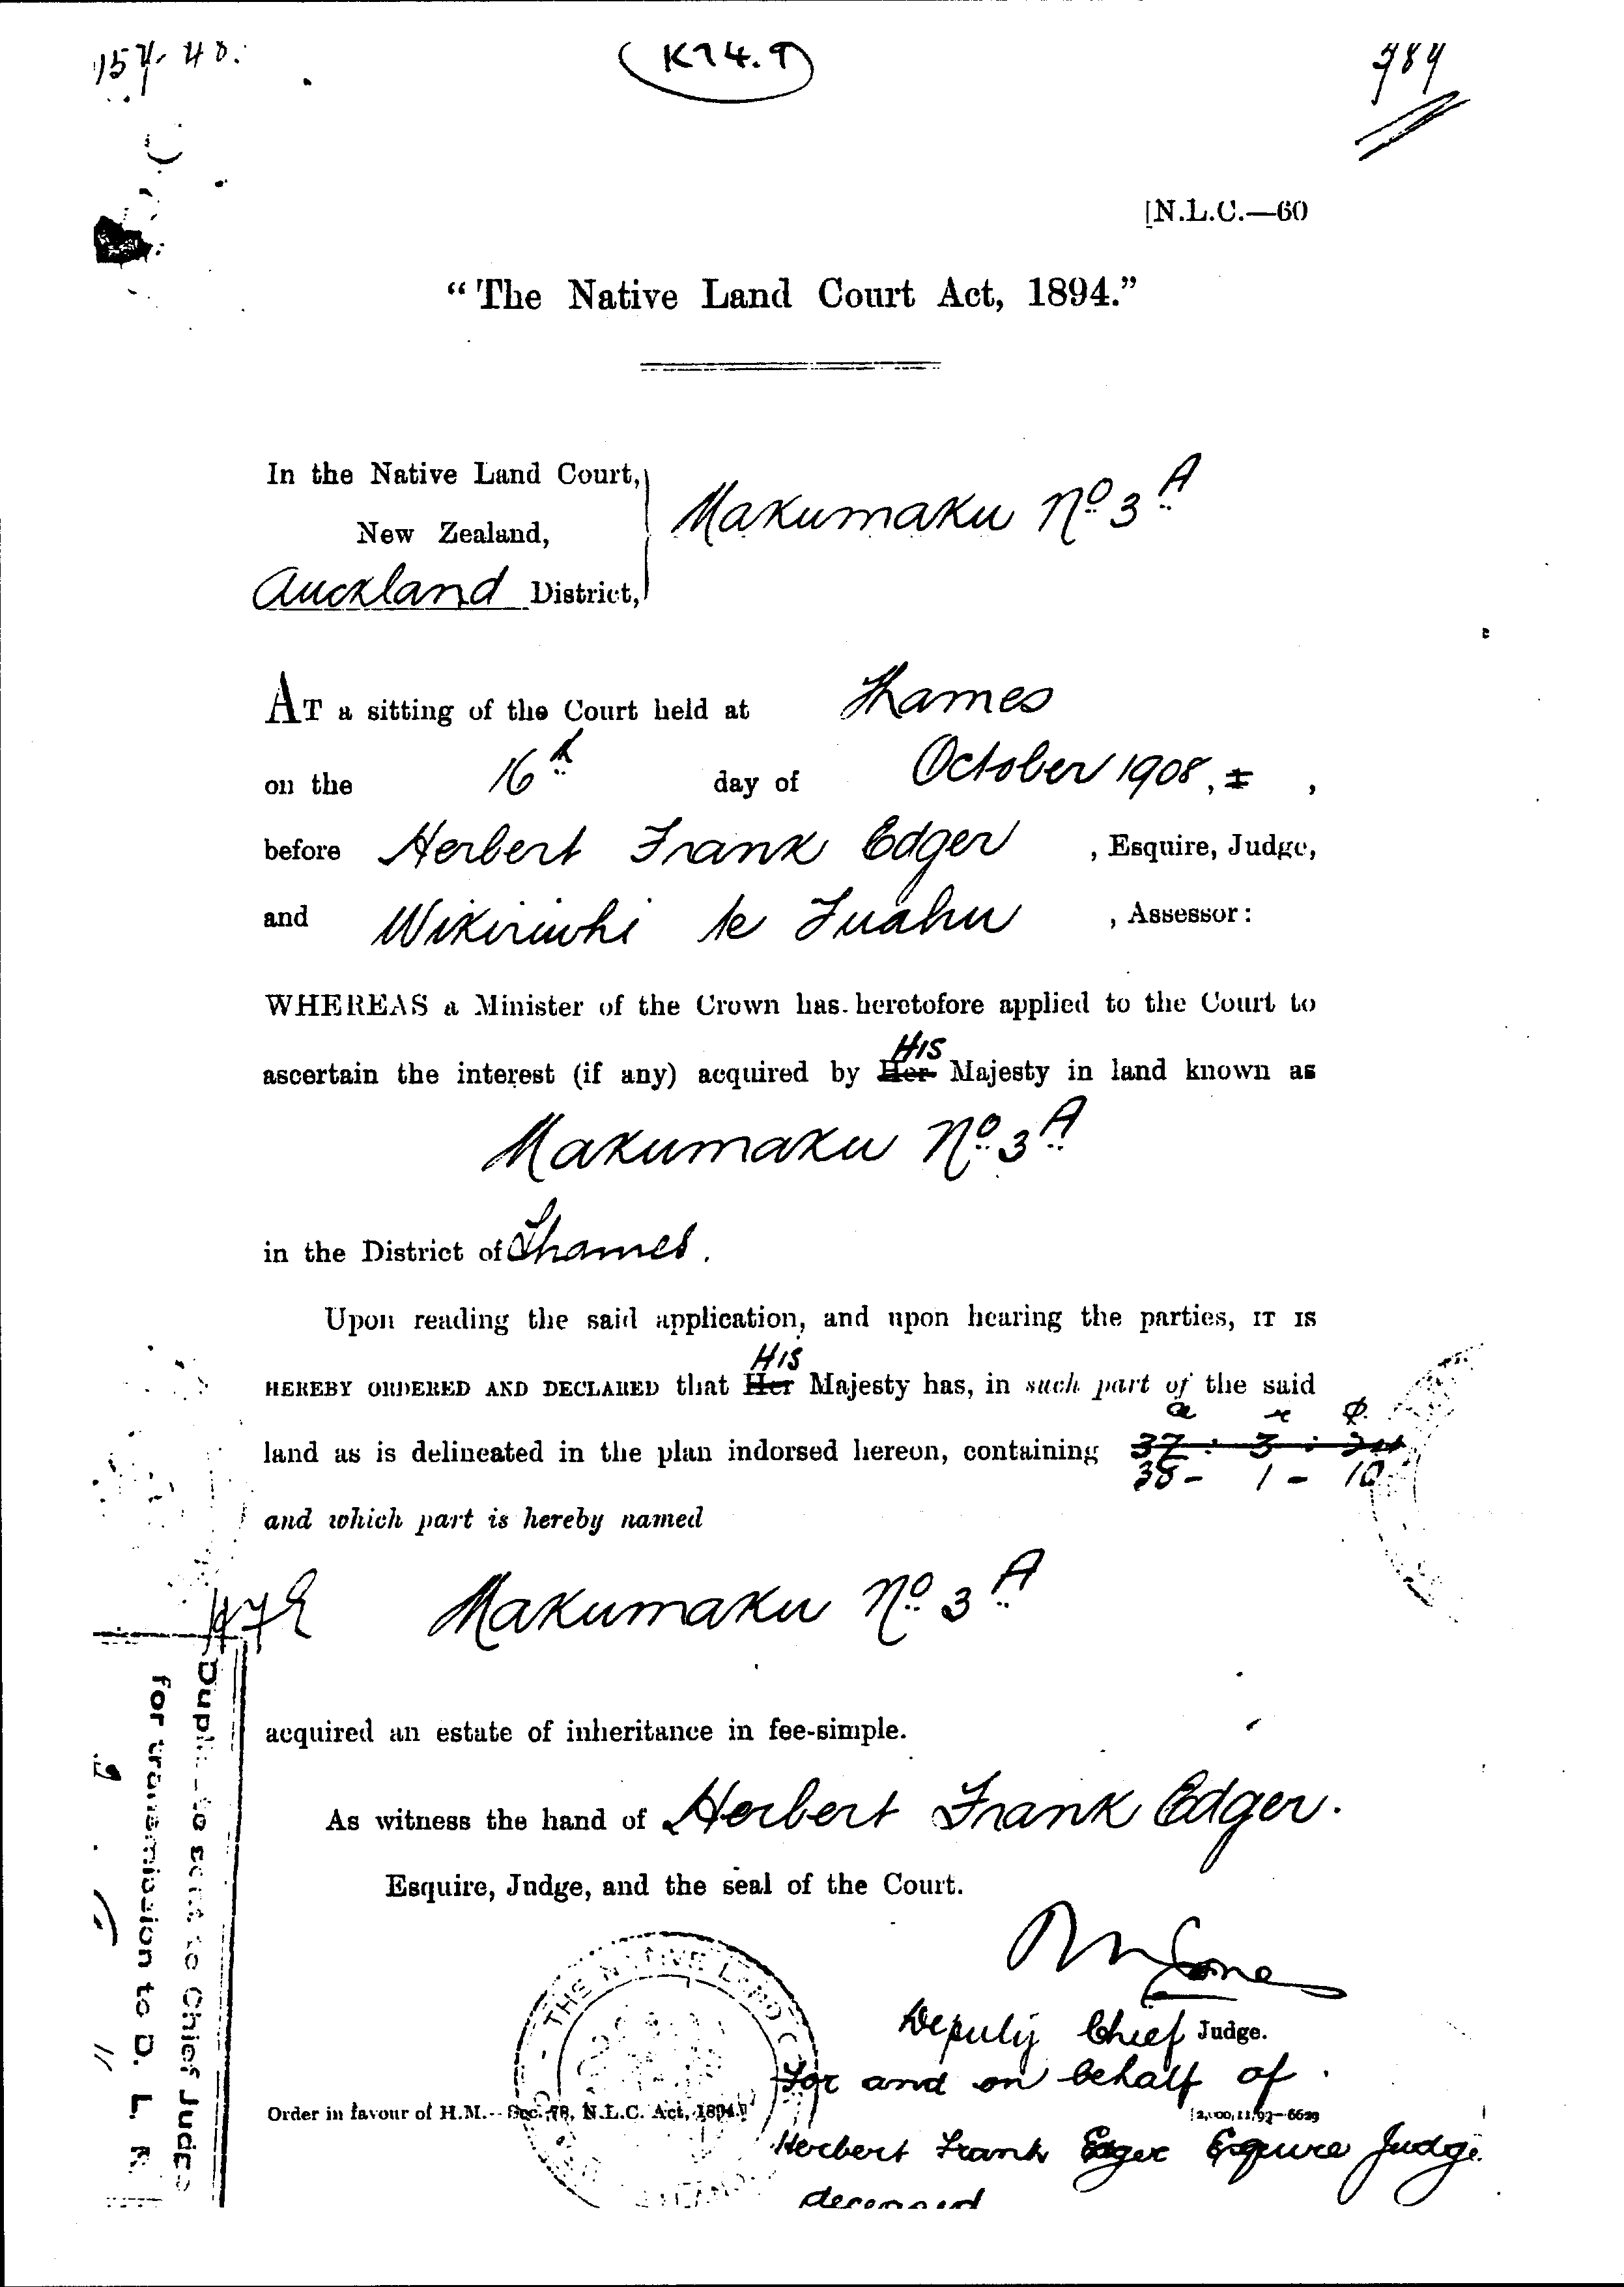 (K14.9)
784
[N.L.C.—60
“The Native Land Court Act, 1894.”
In the Native Land Court,
New Zealand,
Auckland District,
Makumaku No 3A
AT a sitting of the Court held at Thames
on the 16th day of October 1908, ,
before Herbert Frank Edger , Esquire, Judge,
and Wikiriwhi te Tuahu , Assessor:
WHEREAS a Minister of the Crown has heretofore applied to the Court to
HIS
ascertain the interest (if any) acquired by Her Majesty in land known as
Makumaku No 3A
in the District of Thames.
Upon reading the said application, and upon hearing the parties, IT IS
HIS
HEREBY ORDERED AND DECLARED that Her Majesty has, in such part of the said
a r p.
land as is delineated in the plan indorsed hereon, containing 37 : 3 :
38 - 1 - 10
and which part is hereby named
Makumaku No 3A
acquired an estate of inheritance in fee-simple.
As witness the hand of Herbert Frank Edger.
Esquire, Judge, and the seal of the Court.
Deputy Chief Judge.
For and on behalf of
Order in favour of H.M.—Sec. 78, N.L.C. Act, 1894.
Herbert Frank Edger Esquire Judge
deceased
THE NATIVE LAND
Duplicate sent to Chief Judge
for transmission to D. L. R.